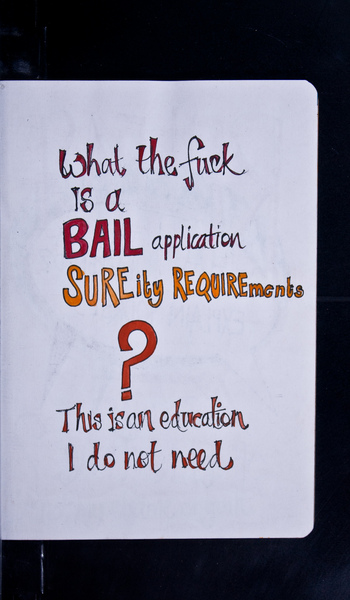 What the fuck
is a
BAIL application
SUREity REQUIREments
?
This is an education
I do not need